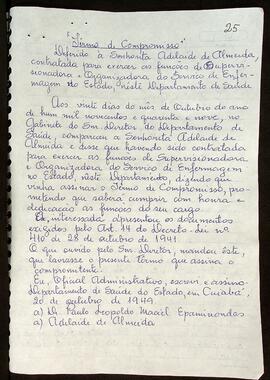 25
"Têrmo de Compromisso"
Deferido à Senhorita Adelaide de Almeida,
contratada para exercer as funções de Supervi-
sionadora e Organizadora do Serviço de Enfer-
magem do Estado, neste Departamento de Saúde
Aos vinte dias do mês de Outubro do ano
de hum mil novecentos e quarenta e nove, no
Gabinete do Snr. Diretor do Departamento de
Saúde, compareceu a Senhorita Adelaide de
Almeida e disse que havendo sido contratada
para exercer as funções de Supervisionadora
e Organizadora do Serviço de Enfermagem
no Estado, neste Departamento, dizendo que
vinha assinar o Têrmo de Compromisso, pro-
metendo que saberá cumprir com honra e
dedicação as funções do seu cargo.
interessada apresentou os documentos
exigidos pelo Art. 14 do Decreto-Lei nº
410 de 28 de outubro de 1941.
O que ouvido pelo Snr. Diretor, mandou êste,
que lavrasse o presente termo que assina o
compromitente.
Eu, Oficial Administrativo, escrevi e assino.
Departamento de Saúde do Estado, em Cuiabá,
20 de outubro de 1949
a) D. Paulo Leopoldo Maciel Epaminondas
a) Adelaide de Almeida